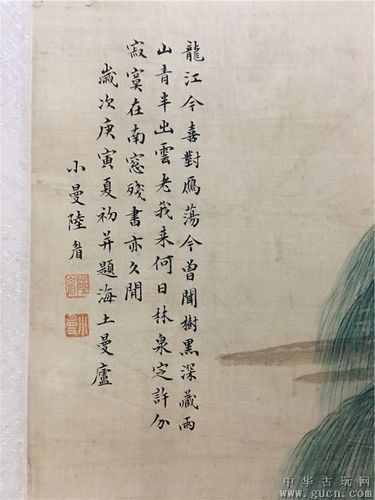 龍江今喜對鴈蕩今曾聞樹黑深藏雨
山青半出雲老我来何日林泉定許分
寂寞在南窓殘書亦久閒
歲次庚寅夏初并題海上曼廬
小曼陸眉
陸眉
小曼
中华古玩网
www.gucn.com